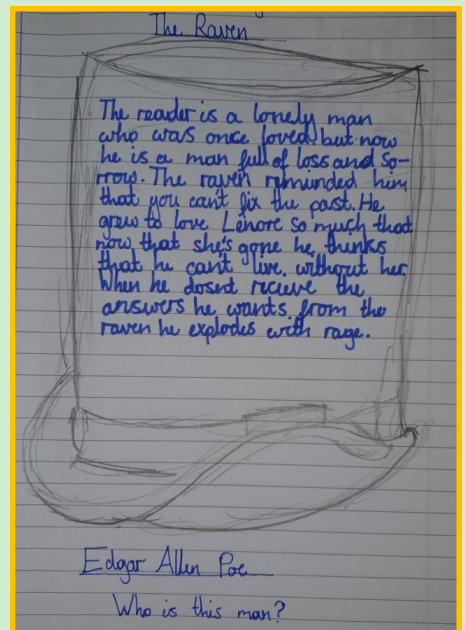 The Raven
The reader is a lonely man
who was once loved but now
he is a man full of loss and so-
rrow. The raven reminded him
that you can't fix the past. He
grew to love Lenore so much that
now that she's gone he thinks
that he can't live without her.
When he dosnt recieve the
answers he wants from the
raven he explodes with rage.
Edgar Allen Poe
Who is this man?